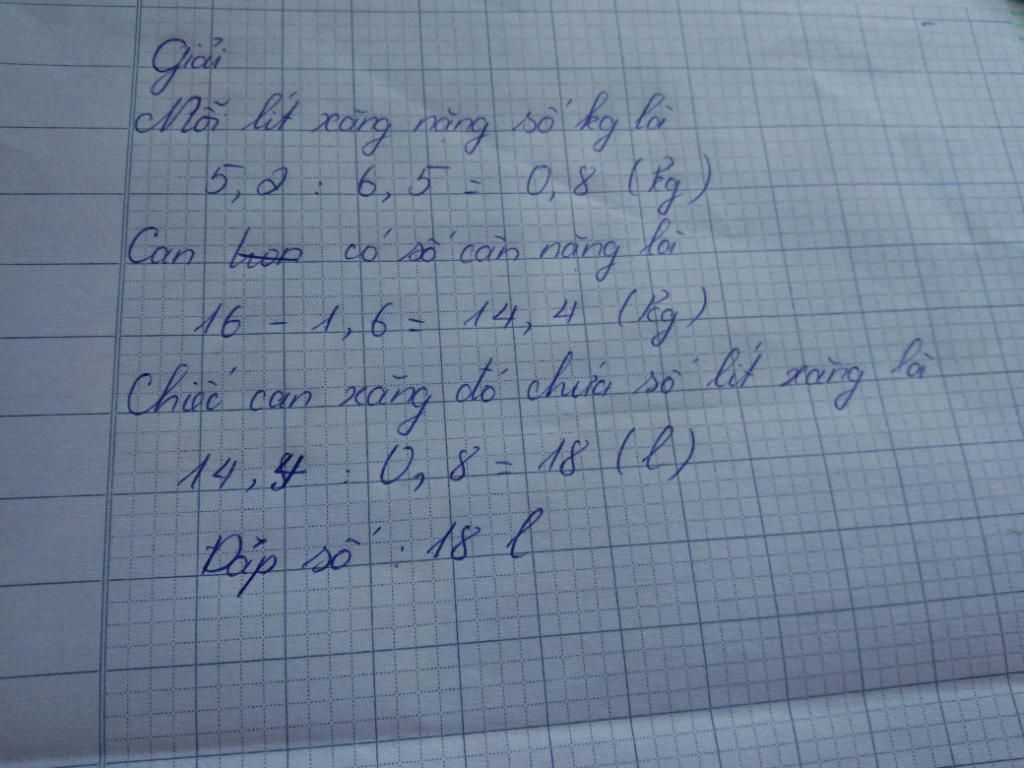 Giải
Mỗi lít xăng nặng số kg là
5,2 : 6,5 = 0,8 (kg)
Can có số cân nặng là
16 - 1,6 = 14,4 (kg)
Chiếc can xăng đó chứa số lít xăng là
14,4 : 0,8 = 18 (l)
Đáp số : 18 l